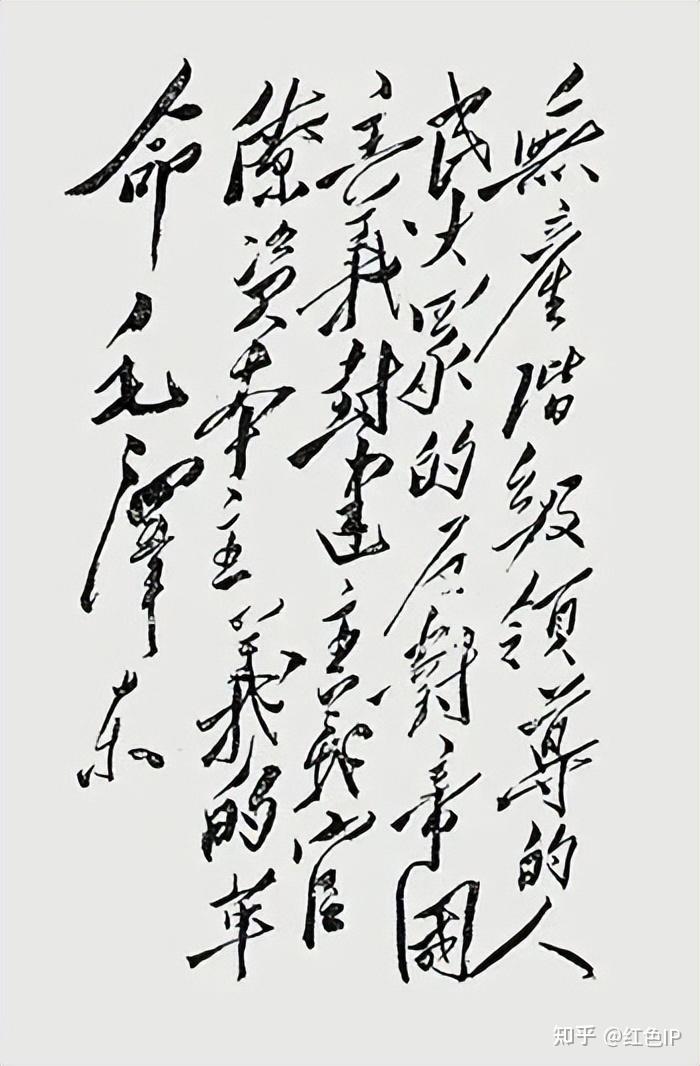 無產階級領導的人
民大眾的反對帝國
主義封建主義官
僚資本主義的革
命 毛澤东
知乎 @红色IP